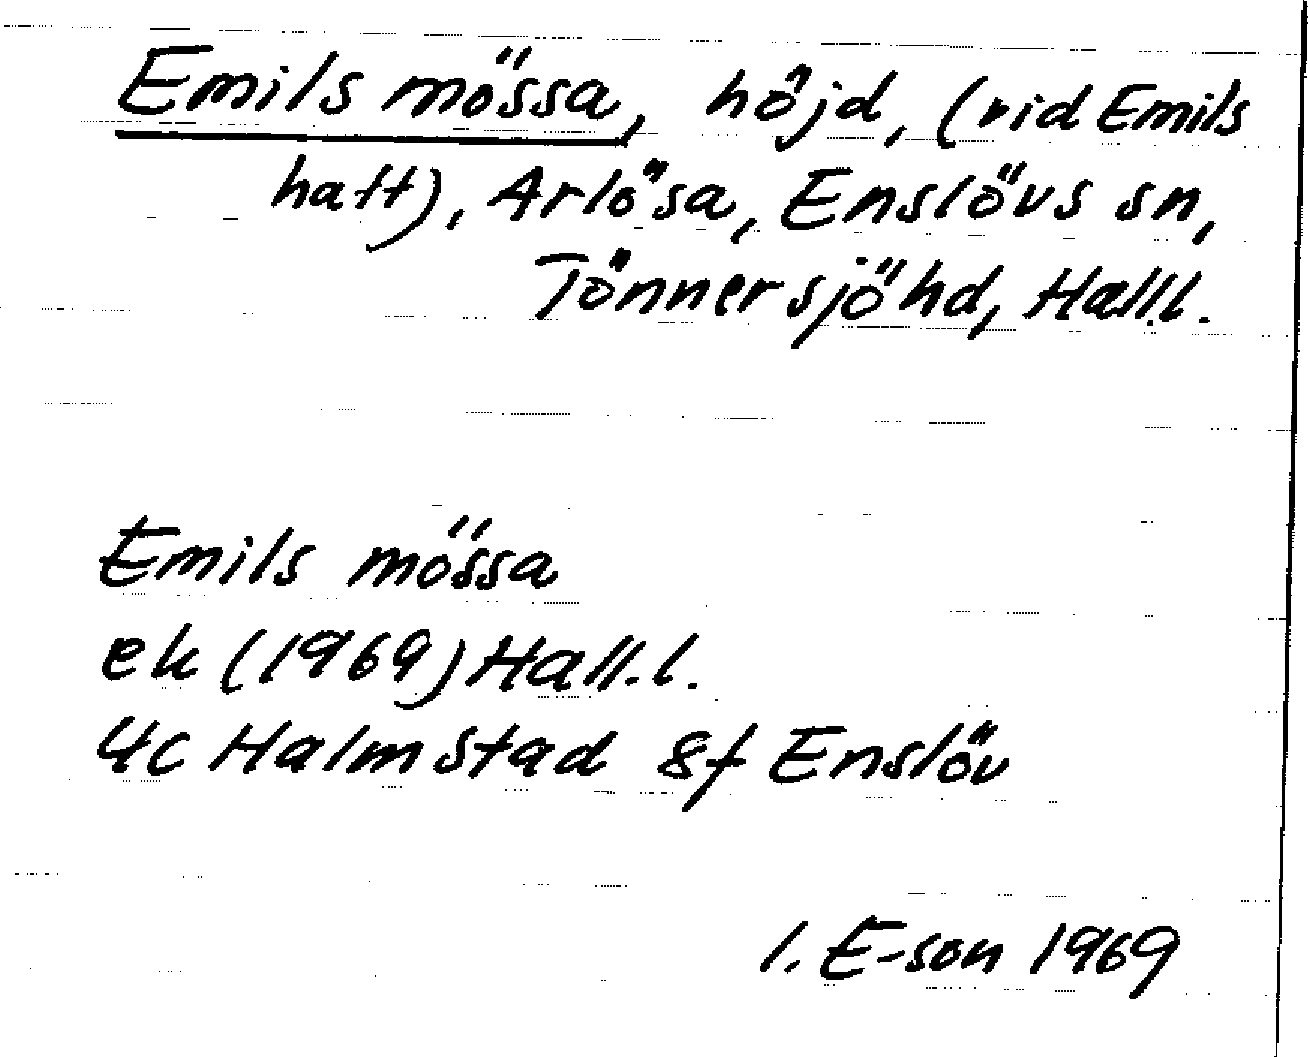 Emils mössa, höjd, (vid Emils
hatt), Arlösa, Enslövs sn,
Tönnersjöhd, Hall.l.
Emils mössa
ek (1969) Hall.l.
4c Halmstad 8f Enslöv
I. E-son 1969